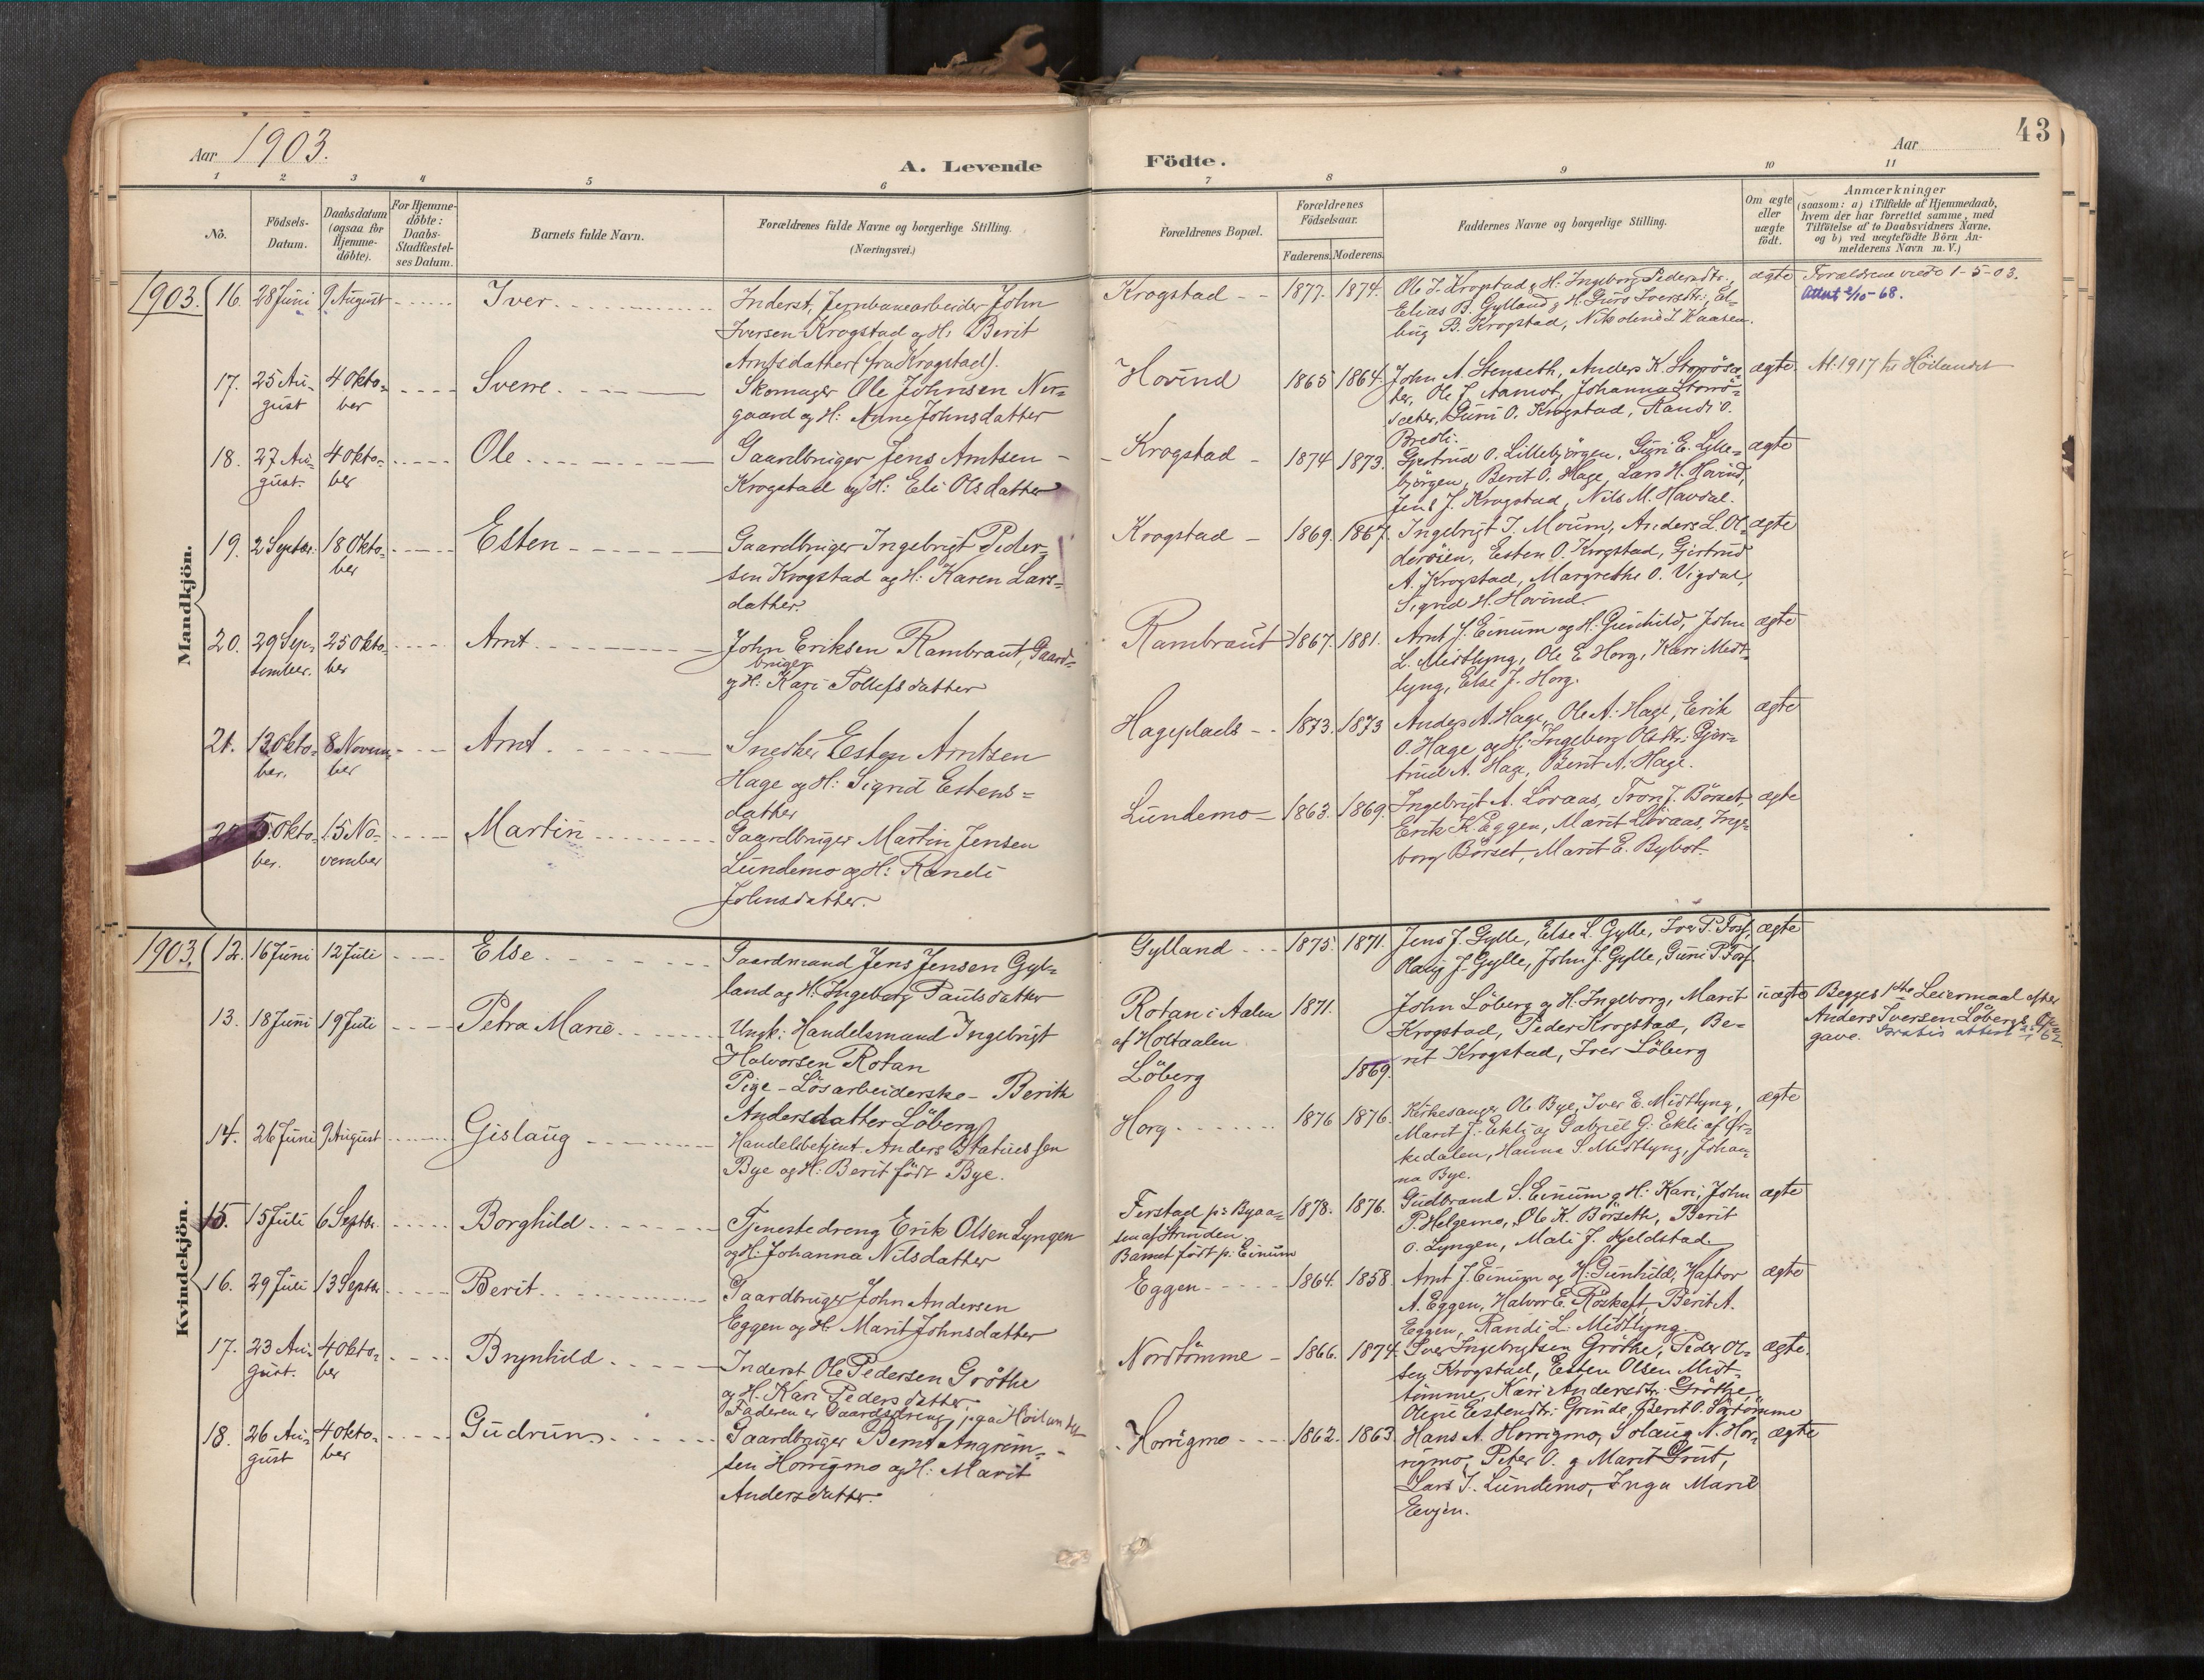 43
Aar 1903.
A. Levende
Födte.
Aar
1 2 3 4 5 6 7 8 9 10 11
No.
Födsels-
Datum.
Daabsdatum
(ogsaa for
Hjemme-
döbte).
For Hjemme-
döbte:
Daabs-
Stadfæstel-
ses Datum.
Barnets fulde Navn.
Forældrenes fulde Navne og borgerlige Stilling.
(Næringsvei.)
Forældrenes Bopæl.
Forældrenes
Födselsaar.
Faderens.
Moderens.
Faddernes Navne og borgerlige Stilling.
Om ægte
eller
uægte
födt.
Anmærkninger
(saasom: a) i Tilfælde af Hjemmedaab,
hvem der har forrettet samme, med
Tilföielse af to Daabsvidners Navne,
og b) ved uægtefödte Börn An-
melderens Navn m. V.)
Mandkjön.
1903.
16. 28 Juni 9 August Iver
Inderst, Jernbanearbeider John
Iversen Krogstad og H: Berit
Arntsdatter (fra Krogstad).
Krogstad 1877. 1874.
Ole J. Krogstad og H: Ingeborg Pedersdtr.,
Elias B. Gylland og H: Guro Iversdtr., El-
ling B. Krogstad, Nikoline I. Kaasen.
ægte
Forældrene viede 1-5-03.
Attest 2/10-68.
17. 25 Au-
gust
4 Okto-
ber
Sverre
Skomager Ole Johnsen Nor-
gaard og H: Anne Johnsdatter
Hovind 1865 1864.
John A. Stenseth, Anders K. Storrösæ-
ter, Ole J. Aamot, Johanna Storrö-
sæter, Guru O. Krogstad, Randi O.
Bredli.
ægte
At. 1917 til Höilandet
18. 27 Au-
gust.
4 Okto-
ber
Ole
Gaardbruger Jens Arntsen
Krogstad og H: Eli Olsdatter
Krogstad 1874 1873.
Gjertrud O. Lillebjörgen, Guri E. Lille-
björgen, Berit O. Hage, Lars H. Hovind,
Jens J. Krogstad, Nils M. Havdal.
ægte
19. 2 Septbr. 18 Okto-
ber
Esten
Gaardbruger Ingebrigt Peder-
sen Krogstad og H: Karen Lars-
datter.
Krogstad 1869. 1867.
Ingebrigt I. Moum, Anders L. Ol-
derösen, Esten O. Krogstad, Gjertrud
A. Krogstad, Margrethe O. Vigdal,
Sigrid H. Hovind.
ægte
20. 29 Sep-
tember.
25 Okto-
ber
Arnt
John Eriksen Rambraut, Gaard-
bruger
og H: Kari Tollefsdatter
Rambraut 1867. 1881.
Arnt J. Einum og H: Gunhild, John
L. Midtlyng, Ole E. Horg, Kari Midt-
lyng, Else J. Horg.
ægte
21. 13 Okto-
ber.
8 Novem-
ber
Arnt
Snedker Esten Arntsen
Hage og H: Sigrid Estens-
datter
Hageplads 1873. 1873
Anders A. Hage, Ole A. Hage, Erik
O. Hage og H: Ingeborg Olsdtr. Gjer-
trud A. Hage, Berit A. Hage.
ægte
22. 5 Okto-
ber.
15 No-
vember
Martin
Gaardbruger Martin Jensen
Lundemo og H: Randi
Johnsdatter.
Lundemo 1863. 1869.
Ingebrigt A. Lövaas, Tron J. Börset,
Erik K. Eggen, Marit Lövaas, Inge-
borg Börset, Marit E. Bybot.
ægte
Kvindekjön.
1903.
12. 16 Juni 12 Juli Else
Gaardmand Jens Jensen Gyl-
land og H: Ingeborg Paulsdatter
Gylland 1875. 1871.
Jens J. Gylle, Else L. Gylle, Iver P. Fosf,
Olaug J. Gylle, John J. Gylle, Guru P. Fosf
ægte
13. 18 Juni 19 Juli Petra Marie
Ungk: Handelsmand Ingebrigt
Halvorsen Rotan
Pige - Lösarbeiderske - Berith
Andersdatter Löberg
Rotan i Aalen
af Holtaalen
Löberg
1871. 1869.
John Löberg og H: Ingeborg, Marit
Krogstad, Peder Krogstad, Be-
rit Krogstad, Iver Löberg
uægte
Begges 1ste Leiermaal efter
Anders Iversen Löbergs Op-
gave. Gratis attest
14. 26 Juni 9 August Gislaug
Handelsbetjent Anders Statiussen
Bye og H: Berit födt Bye.
Horg 1876 1876.
Kirkesanger Ole Bye, Iver E. Midtlyng,
Marit J. Ekli og Gabriel G. Ekli af Or-
kedalen, Hanna S. Midtlyng, Johan-
na Bye.
ægte
15. 15 Juli 6 Septbr. Borghild
Tjenestedreng Erik Olsen Lyngen
og H: Johanna Nilsdatter
Ferstad p: Byaa-
sen af Strinden.
Barnet födt p: Einum
1878. 1876.
Gudbrand S. Einum og H: Kari, John
P. Helgemo, Ole K. Börseth, Berit
O. Lyngen, Mali J. Kjeldstad
ægte
16. 29 Juli 13 Septbr. Berit
Gaardbruger John Andersen
Eggen og H: Marit Johnsdatter
Eggen 1864. 1858
Arnt J. Einum og H: Gunhild, Haftor
A. Eggen, Halvor E. Röskaft, Berit A.
Eggen, Randi L. Midtlyng.
ægte
17. 23 Au-
gust.
4 Okto-
ber
Brynhild
Inderst Ole Pedersen Gröthe
og H: Kari Pedersdatter.
Faderen er Gaardsdreng paa Höilandet
Nordtömme 1866. 1874.
Iver Ingebrigtsen Gröthe, Peder Ol-
sen Krogstad, Esten Olsen Midt-
tömme, Kari Andersdtr. Gröthe,
Oline Estensdtr. Grinde, Berit O. Sörtömme
ægte.
18. 26 Au-
gust
4 Okto-
ber
Gudrun
Gaardbruger Bernt Angrim-
sen Horrigmo og H: Marit
Andersdatter.
Horrigmo 1862. 1863.
Hans A. Horrigmo, Solaug N. Hor-
rigmo, Peter O. og Marit Grut,
Lars I. Lundemo, Inga Marie
Eevjen.
ægte